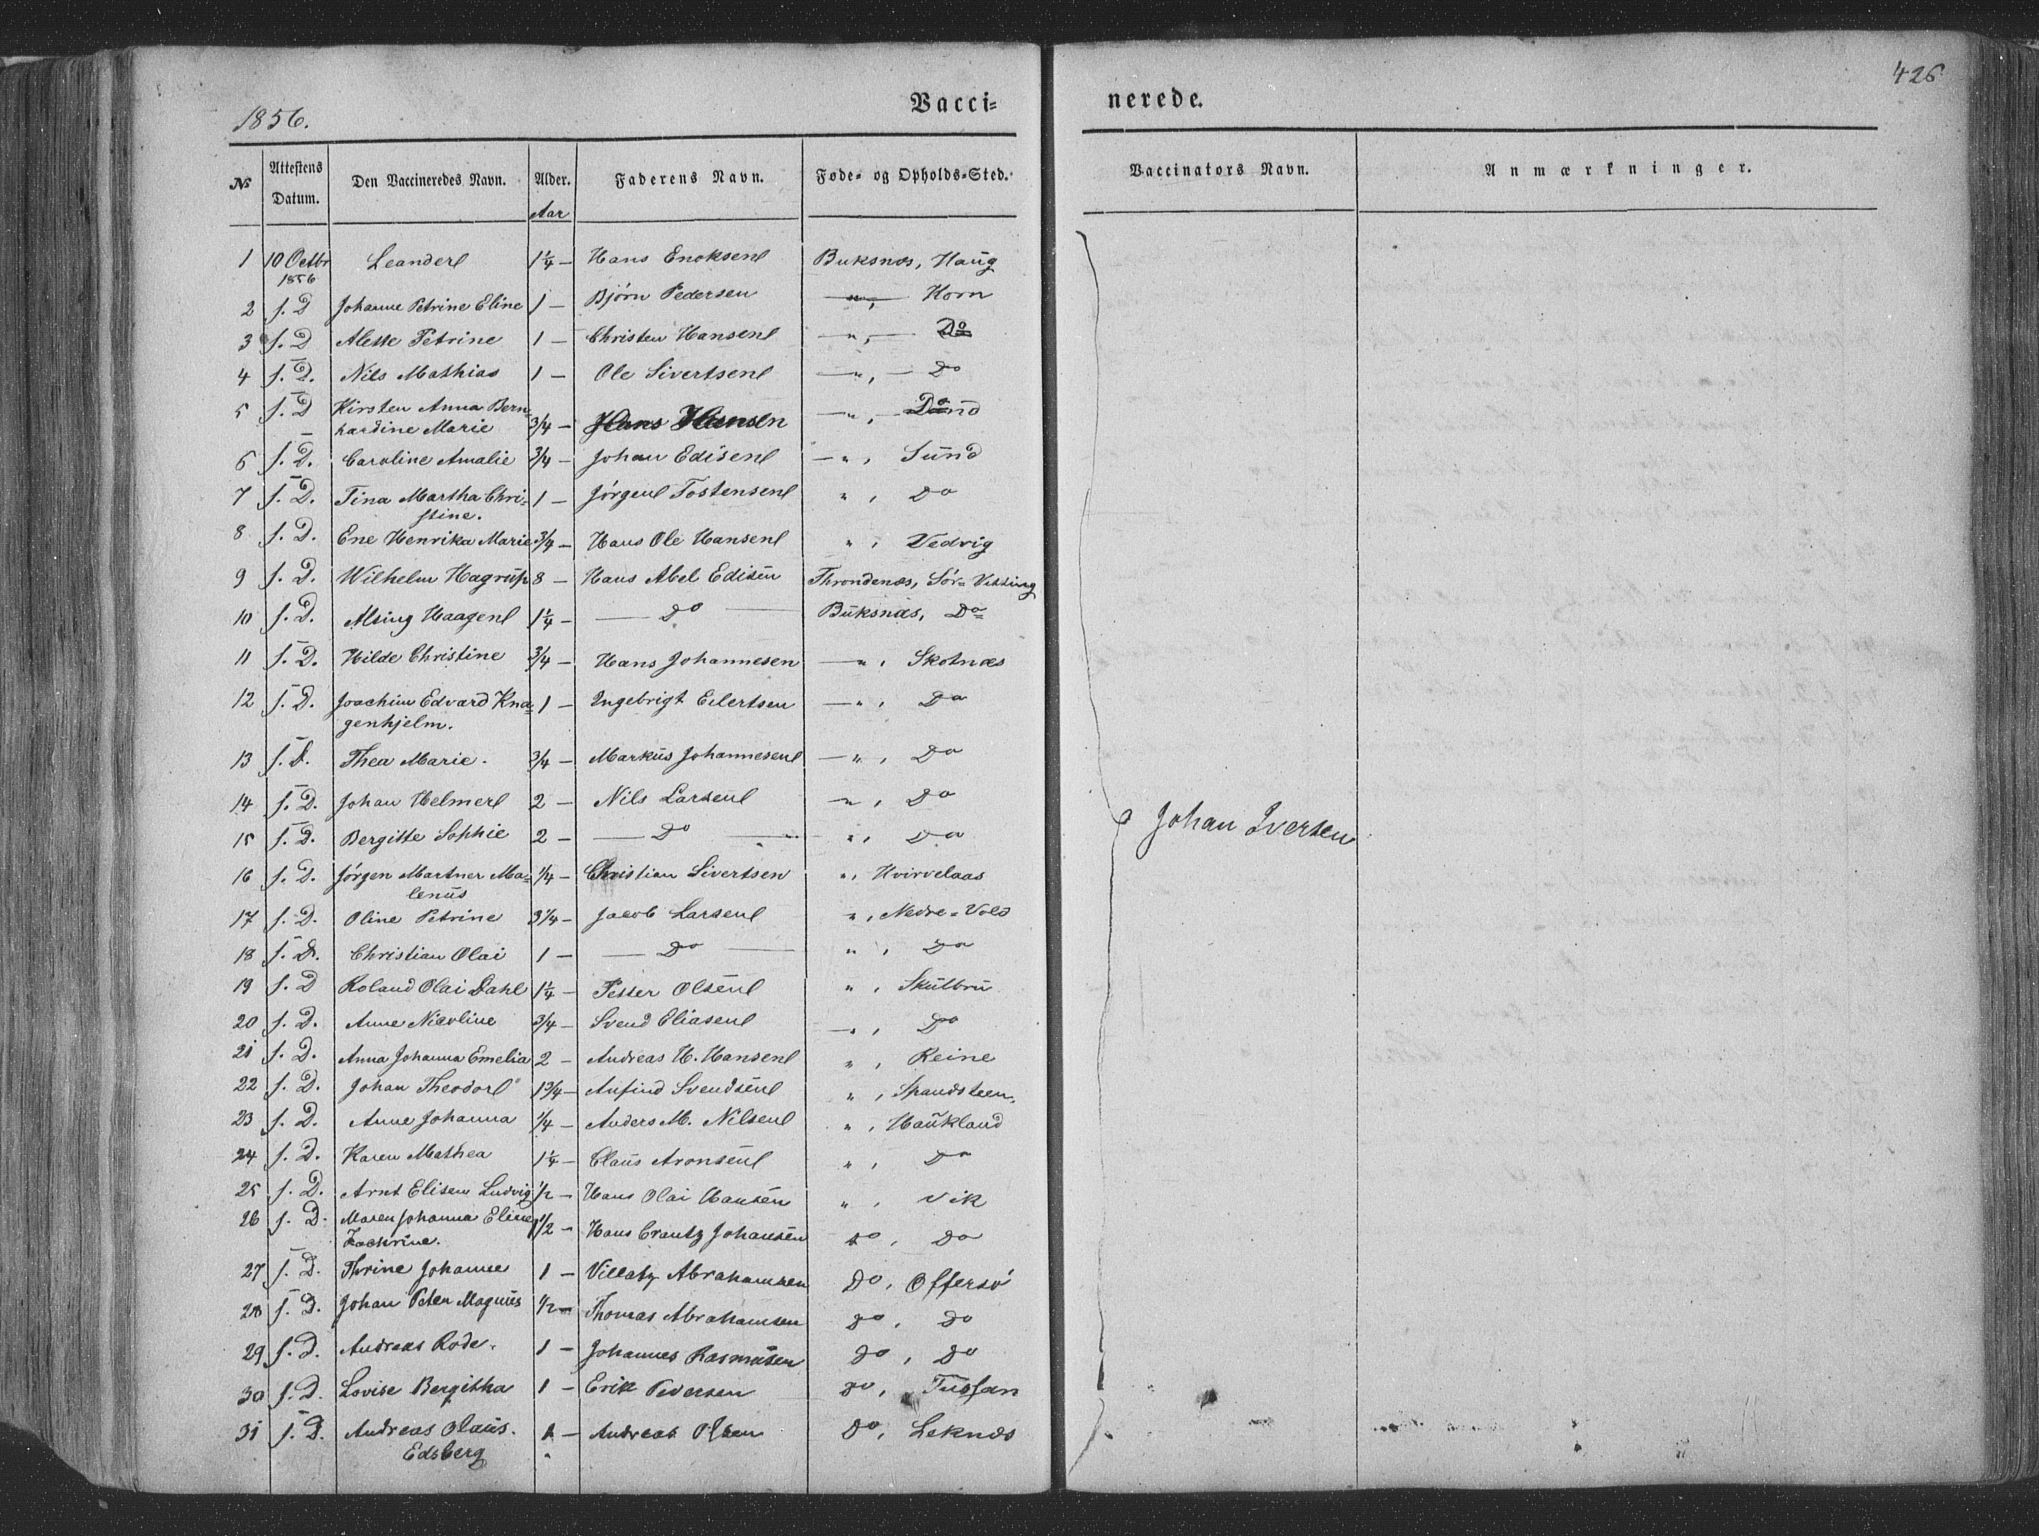 1856. Vacci= nerede. 426
№ Attestens Datum. Den Vaccineredes Navn. Alder. Aar Faderens Navn. Føde- og Opholds-Sted. Vaccinators Navn. Anmærkninger.
1 10 Octbr 1856 Leander 1 1/4 — Hans Enoksen Buksnæs, Haug
2 s. D Johanne Petrine Eline 1 — Bjørn Pedersen —"— Horn
3 s. D Alette Petrine 1 — Christen Hansen —",— Do
4 s. D. Nils Mathias 1 — Ole Sivertsen —",— Do
5 s. D Kirsten Anna Bern=
hardine Marie 3/4 — Hans Hansen —",—
6 s. D. Caroline Amalie 3/4 — Johan Edisen —", Sund
7 s. D. Tina Martha Chri=
stine. 1 — Jørgen Tostensen ", Do
8 s. D. Ene Henrika Marie 3/4 — Hans Ole Hansen ", Vedvig
9 s. D. Wilhelm Hagrup 8 — Hans Abel Edisen Throndenæs, Sør=
10 s. D. Alsing Haagen 1 1/4 — — Do — Buksnæs, Do
11 s. D. Hilde Christine 3/4 — Hans Johannesen —", Skotnæs
12 s. D. Joachim Edvard Kna=
genhjelm. 1 — Ingebrigt Eilertsen —", Do
13 s. D. Thea Marie. 3/4 — Markus Johannesen —", Do
14 s. D. Johan Helmer 2 — Nils Larsen —", Do
15 s. D. Bergitte Sophie 2 — — Do — ", Do
16 s. D. Jørgen Martner Ma=
lenus 1/4 — Christian Sivertsen ", Hvirvelaas
17 s. D. Oline Petrine 3 1/4 — Jacob Larsen ", Nedre=Vold
18 s. D. Christian Olai 1 — — Do — ", Do
19 s. D Roland Olai Dahl 1 1/4 — Petter Olsen ", Skulbru
20 s. D. Anne Nicoline 3/4 — Svend Eliasen —", Do
21 s. D. Anna Johanna Emelia 2 — Andreas H. Hansen ", Reine
22 s. D. Johan Theodor 1 3/4 — Anfind Svendsen ", Spandsteen.
23 s. D. Anne Johanna 1/4 — Anders M. Nilsen ", Haukland
24 s. D. Karen Mathea 1 1/4 — Claus Aronsen ", Do
25 s. D. Arnt Elisen Ludvig 1/2 — Hans Olai Hansen ", Vik
26 s. D. Maren Johanna Eline
Kathrine. 1/2 — Hans Crantz Johansen Do, Do
27 s. D. Thrine Johanne 1 — Villatz Abrahamsen Do, Offersø
28 s. D. Johan Peter Magnus 1/2 — Thomas Abrahamsen Do, Do
29 s. D. Andreas Rode. 1 — Johannes Rasmusen Do, Do
30 s. D. Lovise Bergitha 1 — Erik Pedersen Do,
31 s. D. Andreas Olaus.
Edsberg 1 — Andreas Olsen Do, Leknæs
Johan Iversen